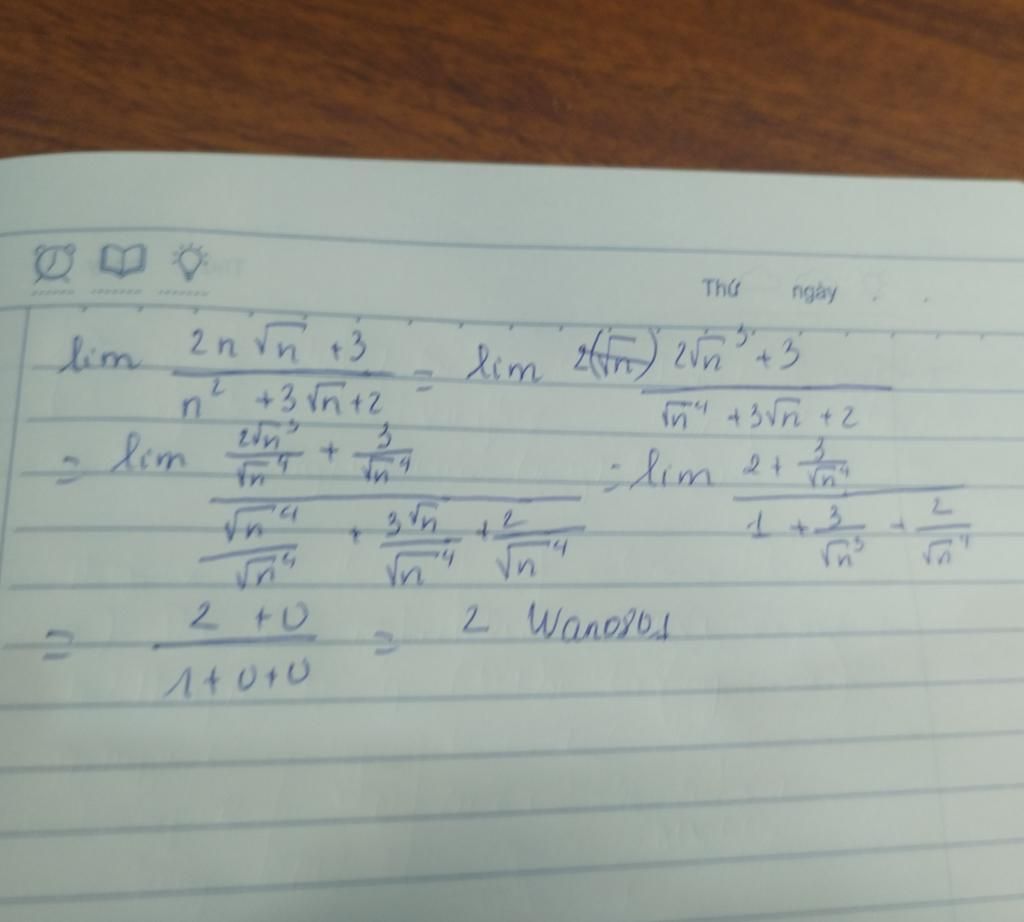 Thứ ngày
lim (2n√n + 3)/(n² + 3√n + 2) = lim 2(√n) (2√n³ + 3)/(√n⁴ + 3√n + 2)
= lim (2√n³/√n⁴ + 3/√n⁴)/(√n⁴/√n⁴ + 3√n/√n⁴ + 2/√n⁴) = lim (2 + 3/√n⁴)/(1 + 3/√n³ + 2/√n⁴)
= (2 + 0)/(1 + 0 + 0) = 2 Wano801